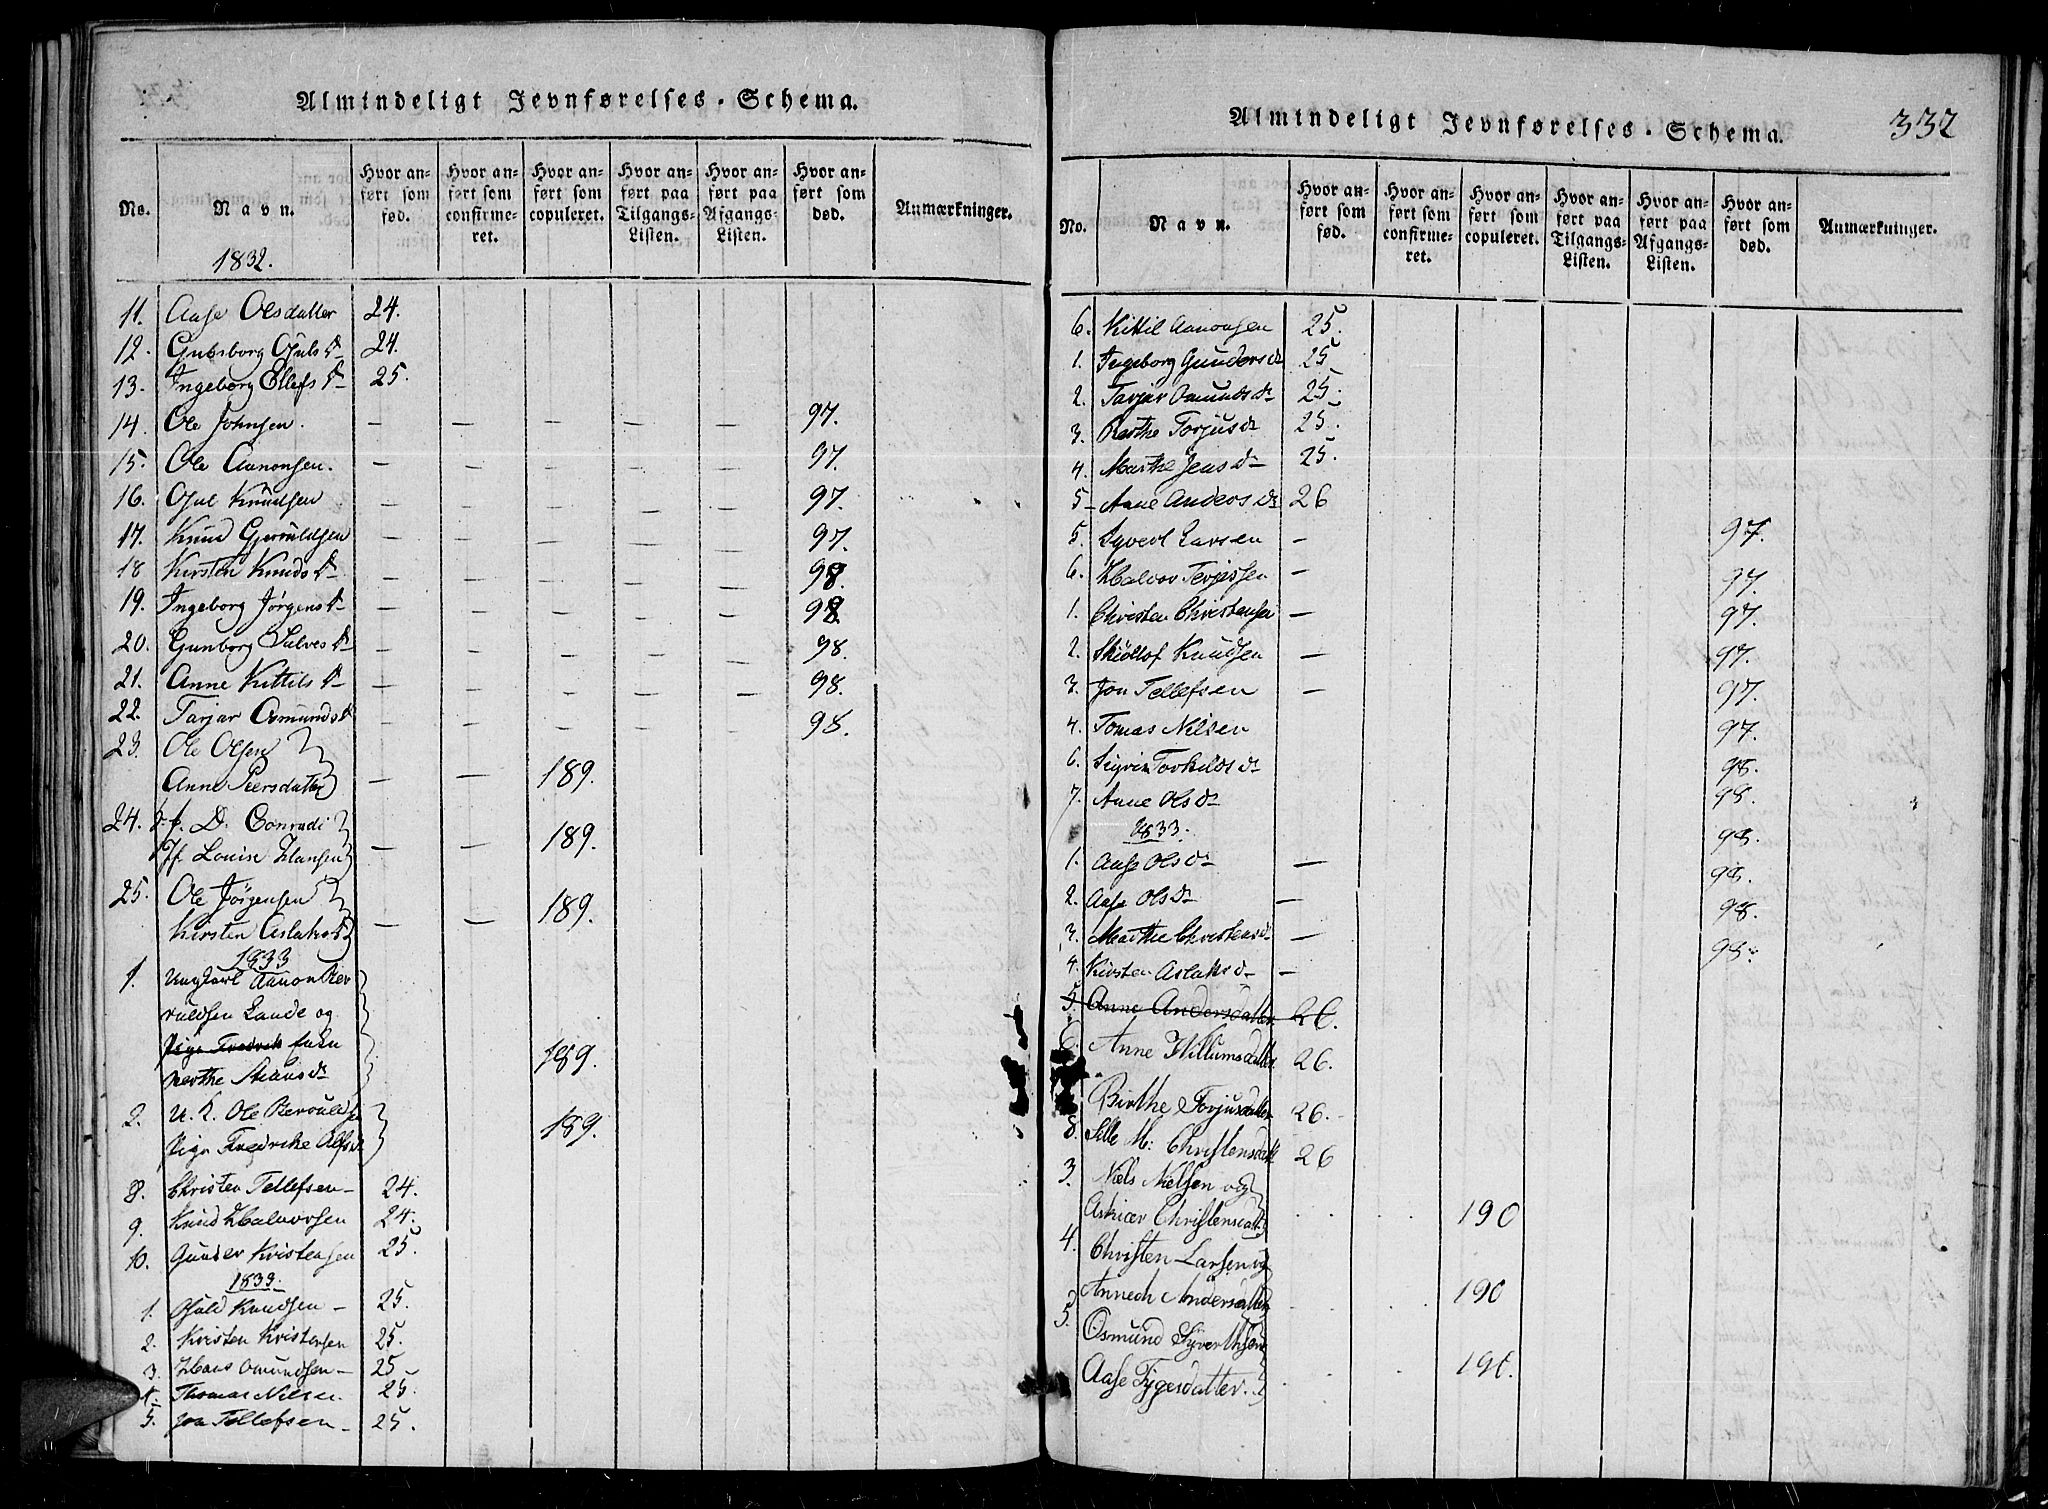 Almindeligt Jevnførelses-Schema.
No. Navn. Hvor anført som fød. Hvor anført som confirmeret. Hvor anført som copuleret. Hvor anført paa Tilgangs-Listen. Hvor anført paa Afgangs-Listen. Hvor anført som død. Anmærkninger.
1832.
11. Aase Olsdatter 24.
12. Gubsborg Ojuls d 24.
13. Ingeborg Ellefs d 25.
14. Ole Johnsen. — — — — — 97.
15. Ole Aanonsen. — — — — — 97.
16. Ojul Knudsen — — — — — 97.
17. Knud Gjeruldsen — — — — — 97.
18 Kirsten Knuds d — — — — — 98.
19. Ingeborg Jörgens d — — — — — 98
20. Gunborg Salves d — — — — — 98.
21. Anne Kittils d — — — — — 98.
22. Tarjar Osmunds d — — — — — 98.
23. Ole Olsen
Anne Peersdatter — — 189.
24. D. Conradi
Jf Louise Hansen — — 189.
25. Ole Jörgensen
Kirsten Aslaks d — — 189.
1833
1. Ungkarl Aanon Ber
ruldsen Lande og
Pige Fredrik
Nerthe d 189.
2. U. K. Ole Berouldse
Pige Fredrike Alfs d 189.
8. Christen Tellefsen — 24.
9. Knud Halvorsen 24.
10. Gunder Kristensen 25.
1833.
1. Ojuld Knudsen — 25.
2. Kristen Kristensen 25.
3. Hans Omundsen — 25
4. Thomas Nilsen 25.
5. Jon Tellefsen — 25.
Almindeligt Jevnførelses-Schema. 332
No. Navn. Hvor anført som fød. Hvor anført som confirmeret. Hvor anført som copuleret. Hvor anført paa Tilgangs-Listen. Hvor anført paa Afgangs-Listen. Hvor anført som død. Anmærkninger.
6. Kittil Aanonsen 25.
1. Ingeborg Gunders d 25
2. Tarjar Omunds d 25.
3. Berthe Torjus d 25.
4. Marthe Jens d — 25.
5 — Anne Anders d 26
5. Syvert Larsen — 97.
6. Halvor Terjesen — 97.
1. Christen Christensen — 97.
2. Skiöllof Knudsen — 97.
3. Jon Tellefsen — 97.
4. Tomas Nilsen 97.
6. Sigrin Torkilds d 98.
7. Anne Ols d 98.
1833. 98.
1. Aase Ols d — 98.
2. Aase Ols d — 98.
3. Marthe Christens d — 98.
4. Kirsten Aslaks d —
5. Anne Andersdatter 26.
6. Anne Willumsdatter 26.
Birthe Torjusdatter 26.
8. Sille M: Christensdatt 26
3. Niels Nielsen og
Christensdatt 190
4. Christen Larsen og
Annech Andersdatter 190
5. Osmund Syverthsen
Aase Tygesdatter. 190.